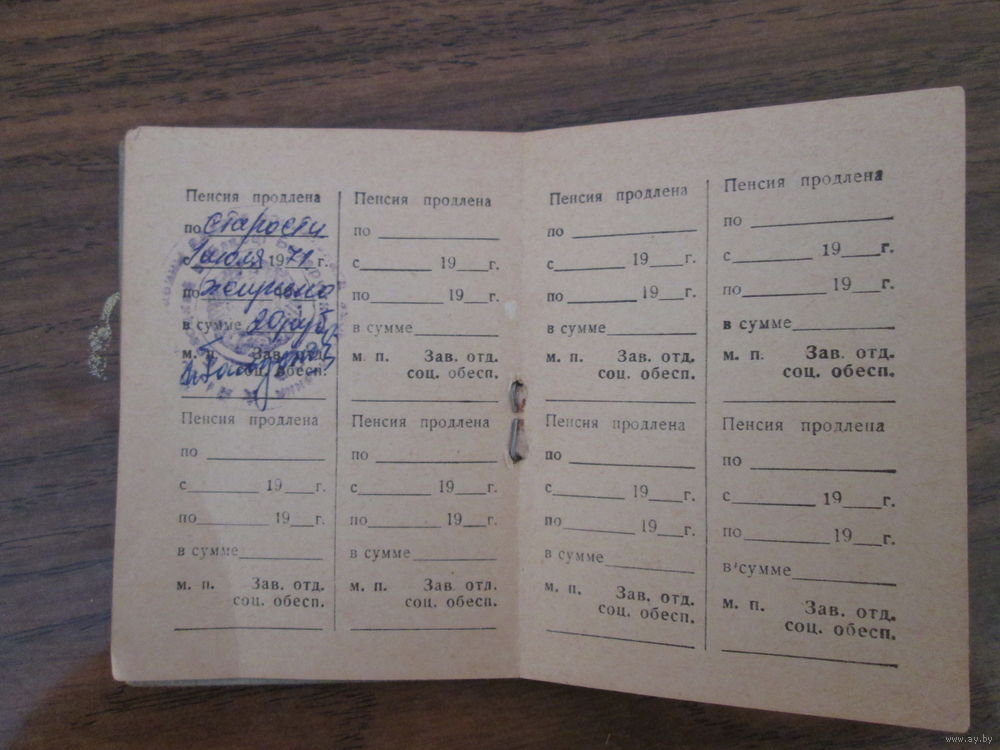 Пенсия продлена
по старости
с 1 июля 1971 г.
по жизненно
в сумме 20 руб
м. п. Зав. отд.
соц. обесп.
Пенсия продлена
по
с 19 г.
по 19 г.
в сумме
м. п. Зав. отд.
соц. обесп.
Пенсия продлена
по
с 19 г.
по 19 г.
в сумме
м. п. Зав. отд.
соц. обесп.
Пенсия продлена
по
с 19 г.
по 19 г.
в сумме
м. п. Зав. отд.
соц. обесп.
Пенсия продлена
по
с 19 г.
по 19 г.
в сумме
м. п. Зав. отд.
соц. обесп.
Пенсия продлена
по
с 19 г.
по 19 г.
в сумме
м. п. Зав. отд.
соц. обесп.
Пенсия продлена
по
с 19 г.
по 19 г.
в сумме
м. п. Зав. отд.
соц. обесп.
Пенсия продлена
по
с 19 г.
по 19 г.
в сумме
м. п. Зав. отд.
соц. обесп.
www.ay.by